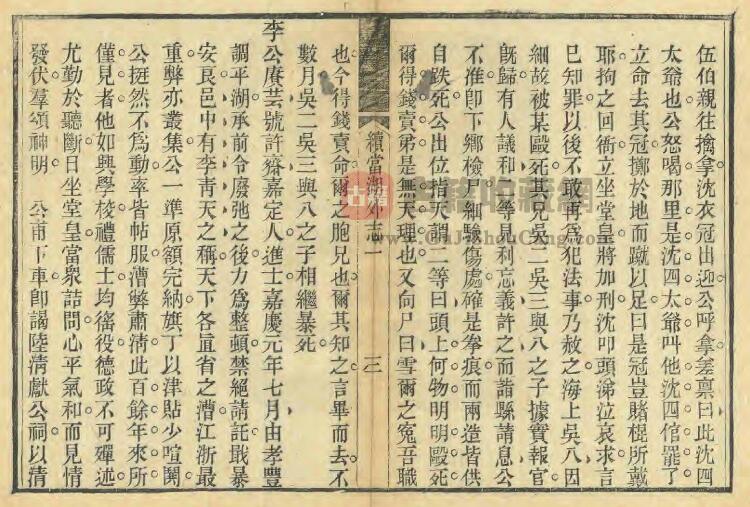 伍伯親往擒拿沈衣冠出迎公呼拿差稟曰此沈四
太爺也公怒喝那里是沈四太爺叫他沈四倌罷了
立命去其冠擲於地而蹴以足曰是冠豈賭棍所戴
耶拘之回衙立坐堂皇將加刑沈叩頭涕泣哀求言
已知罪以後不敢再爲犯法事乃赦之海上吳八因
細故被某毆死其兄吳二吳三與八之子據實報官
旣歸有人議和二等見利忘義許之而詣縣請息公
不准卽下鄉檢尸細驗傷處確是拳痕而兩造皆供
自跌死公出位指天謂二等曰頭上何物明明毆死
爾得錢賣弟是無天理也又向尸曰雪爾之冤吾職
續當湖外志一
三
也今得錢賣命爾之胞兄也爾其知之言畢而去不
數月吳二吳三與八之子相繼暴死
李公賡芸號許齋嘉定人進士嘉慶元年七月由孝豐
調平湖承前令廢弛之後力爲整頓禁絕請託戢暴
安良邑中有李靑天之稱天下各直省之漕江浙最
重弊亦叢集公一準原額完納旗丁以津貼少喧鬨
公挺然不爲動率皆帖服漕弊肅清此百餘年來所
僅見者他如興學校禮儒士均徭役德政不可殫述
尤勤於聽斷日坐堂皇當衆詰問心平氣和而見情
發伏羣頌神明 公甫下車卽謁陸清獻公祠以清
古籍
古籍收藏網
www.GuJiShouCang.com